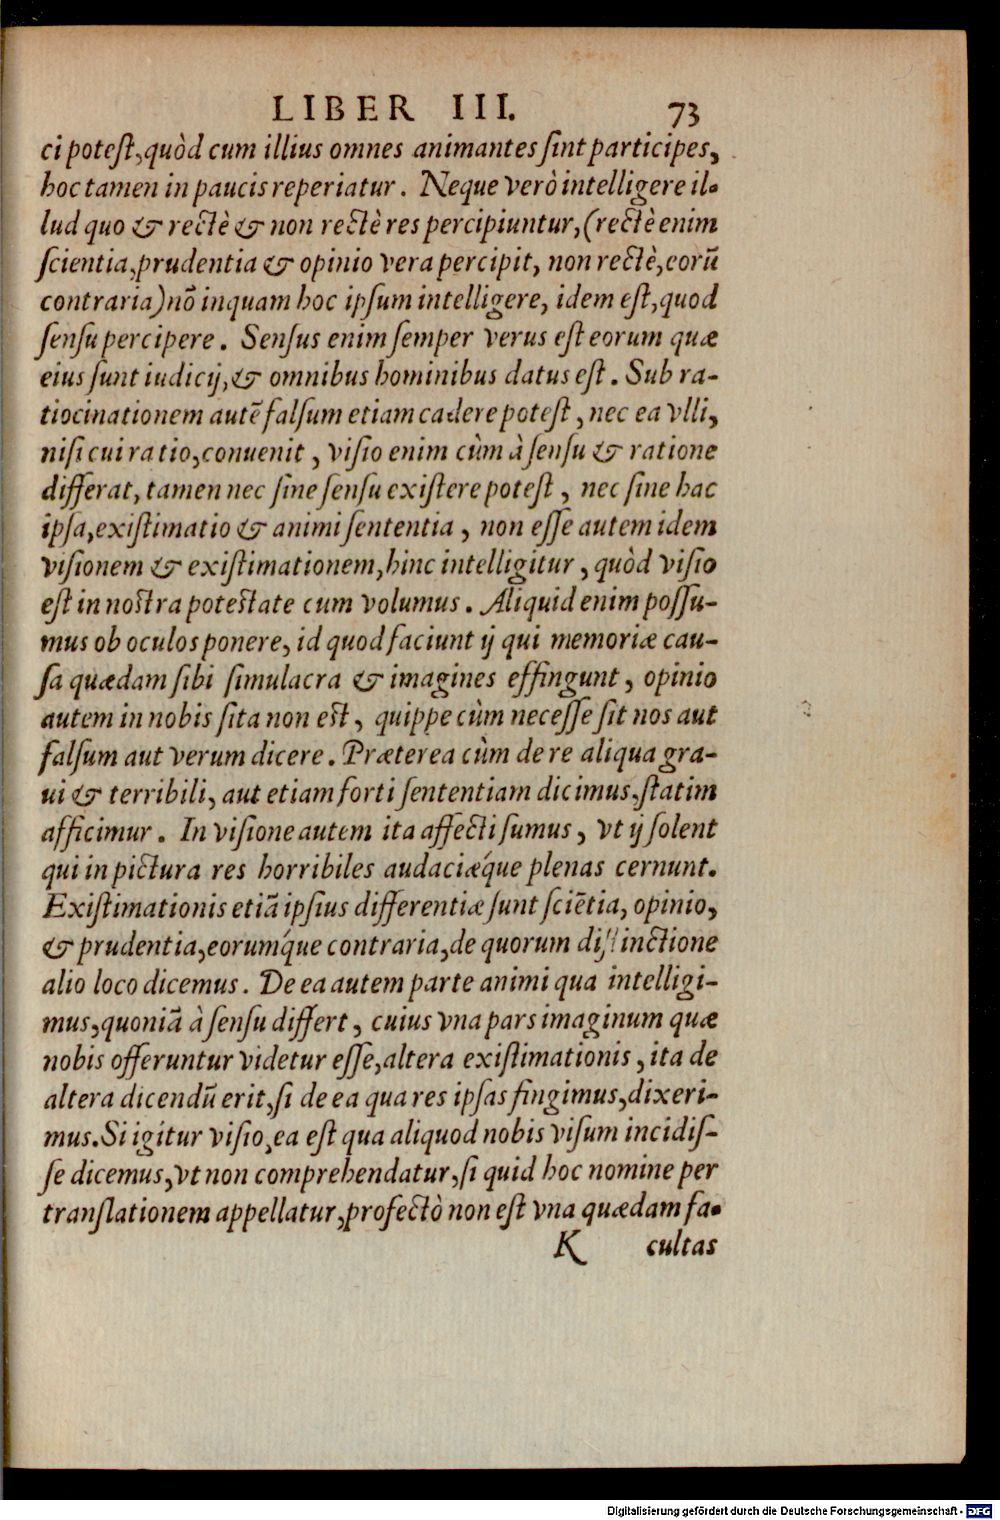 LIBER III. 73
ci potest, quòd cum illius omnes animantes sint participes,
hoc tamen in paucis reperiatur. Neque verò intelligere il-
lud quo & rectè & non rectè res percipiuntur, (rectè enim
scientia, prudentia & opinio vera percipit, non rectè, eorū
contraria) nō inquam hoc ipsum intelligere, idem est, quod
sensu percipere. Sensus enim semper verus est eorum quæ
eius sunt iudicij, & omnibus hominibus datus est. Sub ra-
tiocinationem autē falsum etiam cadere potest, nec ea vlli,
nisi cui ratio, conuenit, visio enim cùm à sensu & ratione
differat, tamen nec sine sensu existere potest, nec sine hac
ipsa, existimatio & animi sententia, non esse autem idem
visionem & existimationem, hinc intelligitur, quòd visio
est in nostra potestate cum volumus. Aliquid enim possu-
mus ob oculos ponere, id quod faciunt ij qui memoriæ cau-
sa quædam sibi simulacra & imagines effingunt, opinio
autem in nobis sita non est, quippe cùm necesse sit nos aut
falsum aut verum dicere. Præterea cùm de re aliqua gra-
ui & terribili, aut etiam forti sententiam dicimus, statim
afficimur. In visione autem ita affecti sumus, vt ij solent
qui in pictura res horribiles audaciæq́ue plenas cernunt.
Existimationis etiā ipsius differentiæ sunt sciētia, opinio,
& prudentia, eorumq́ue contraria, de quorum distinctione
alio loco dicemus. De ea autem parte animi qua intelligi-
mus, quoniā à sensu differt, cuius vna pars imaginum quæ
nobis offeruntur videtur esse, altera existimationis, ita de
altera dicendū erit, si de ea qua res ipsas fingimus, dixeri-
mus. Si igitur visio, ea est qua aliquod nobis visum incidis-
se dicemus, vt non comprehendatur, si quid hoc nomine per
translationem appellatur, profectò non est vna quædam fa-
K cultas
Digitalisierung gefördert durch die Deutsche Forschungsgemeinschaft - DFG